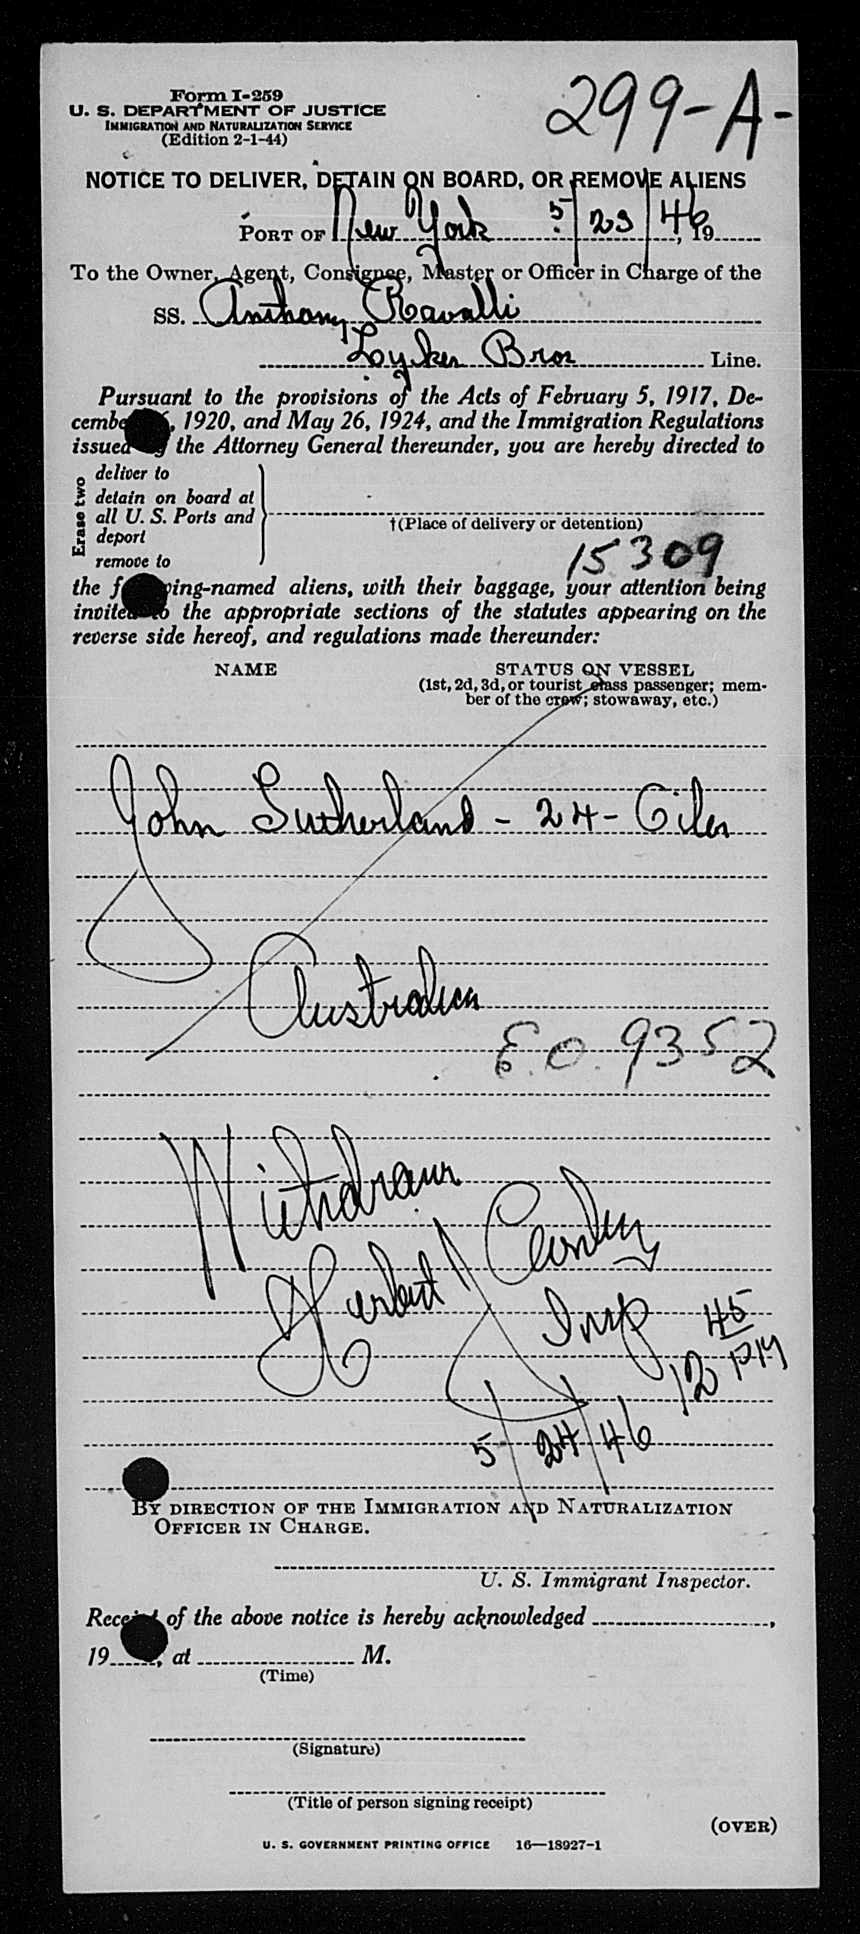 Form I-259
U. S. DEPARTMENT OF JUSTICE
IMMIGRATION AND NATURALIZATION SERVICE
(Edition 2-1-44)
299-A-
NOTICE TO DELIVER, DETAIN ON BOARD, OR REMOVE ALIENS
PORT OF New York 5/23/46, 19
To the Owner, Agent, Consignee, Master or Officer in Charge of the
SS. Anthony Ravalli
Lykes Bros Line.
Pursuant to the provisions of the Acts of February 5, 1917, De-
cembe 6, 1920, and May 26, 1924, and the Immigration Regulations
issued by the Attorney General thereunder, you are hereby directed to
Erase two
deliver to
detain on board at
all U. S. Ports and
deport
remove to
†(Place of delivery or detention)
15309
the following-named aliens, with their baggage, your attention being
invited to the appropriate sections of the statutes appearing on the
reverse side hereof, and regulations made thereunder:
NAME STATUS ON VESSEL
(1st, 2d, 3d, or tourist class passenger; mem-
ber of the crew; stowaway, etc.)
John Sutherland - 24 - Oiler
Australian
E.O. 9352
Withdrawn
Herbert J
Insp 45
12 PM
5/24/46
BY DIRECTION OF THE IMMIGRATION AND NATURALIZATION
OFFICER IN CHARGE.
U. S. Immigrant Inspector.
Receipt of the above notice is hereby acknowledged ,
19 , at M.
(Time)
(Signature)
(Title of person signing receipt)
(OVER)
U. S. GOVERNMENT PRINTING OFFICE 16—18927-1